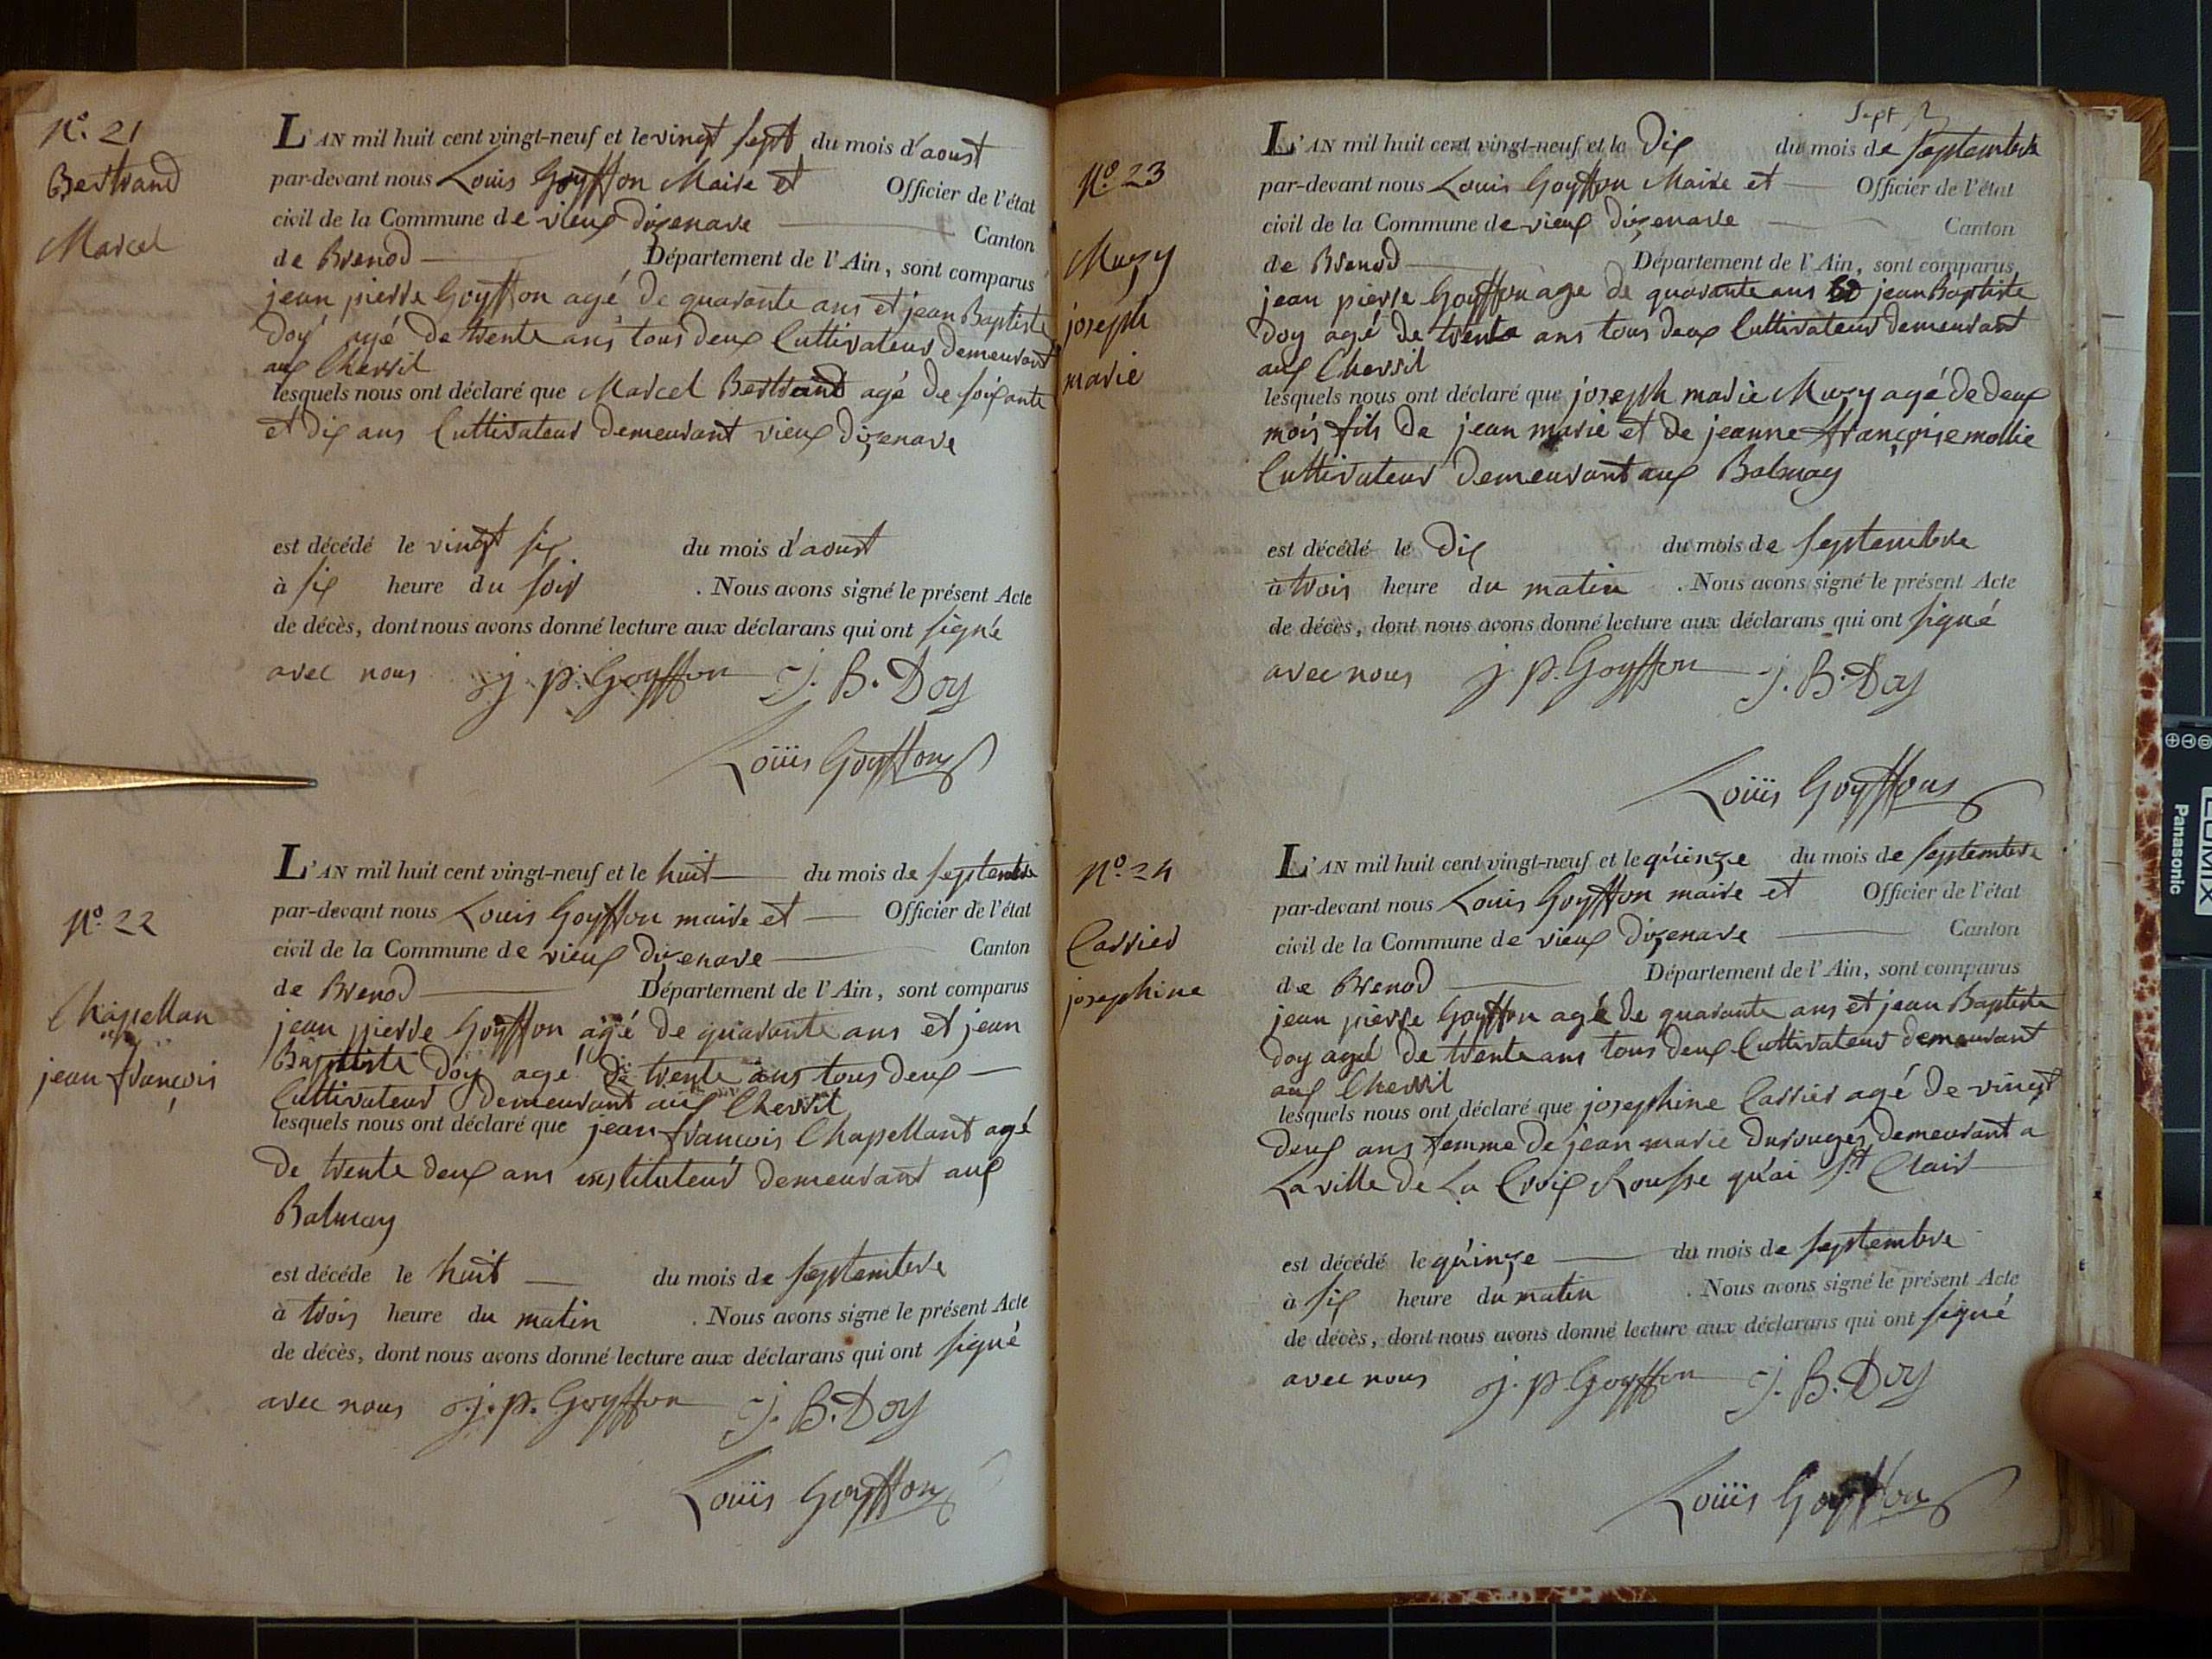 N.o 21
Bertrand
Marcel
L'AN mil huit cent vingt-neuf et le vingt sept du mois d'aoust
par-devant nous Louis Goyffon Maire et Officier de l'état
civil de la Commune de vieux dizenave Canton
de Brenod Département de l'Ain, sont comparus
jean pierre Goyffon agé de quarante ans et jean Baptiste
Doy agé de trente ans tous deux Cultivateur demeurant
aux Chevril
lesquels nous ont déclaré que Marcel Bertrand agé de soixante
et dix ans Cultivateur demeurant vieux dizenave
est décédé le vingt six du mois d'aoust
à six heure du soir . Nous avons signé le présent Acte
de décès, dont nous avons donné lecture aux déclarans qui ont signé
avec nous j. p. Goyffon J. B. Doy
Louis Goyffon
N.o 22
Chapellan
jean françois
L'AN mil huit cent vingt-neuf et le huit du mois de septembre
par-devant nous Louis Goyffon maire et Officier de l'état
civil de la Commune de vieux dizenave Canton
de Brenod Département de l'Ain, sont comparus
jean pierre Goyffon agé de quarante ans et jean
Baptiste Doy agé de trente ans tous deux
Cultivateur demeurant aux Chevril
lesquels nous ont déclaré que jean francois Chapellant agé
de trente deux ans instituteur demeurant aux
Balmay
est décéde le huit du mois de septembre
à trois heure du matin . Nous avons signé le présent Acte
de décès, dont nous avons donné lecture aux déclarans qui ont signé
avec nous j. p. Goyffon J. B. Doy
Louis Goyffon
Sept
N.o 23
Muzy
joseph
marie
L'AN mil huit cent vingt-neuf et le Dix du mois de septembre
par-devant nous Louis Goyffon Maire et Officier de l'état
civil de la Commune de vieux dizenave Canton
de Brenod Département de l'Ain, sont comparus
jean pierre Goyffon age de quarante ans et jean Baptiste
Doy agé de trente ans tous deux Cultivateur demeurant
aux Chevril
lesquels nous ont déclaré que joseph marie Muzy agé de deux
mois fils de jean marie et de jeanne françoise mollie
Cultivateur demeurant aux Balmay
est décédé le Dix du mois de septembre
à trois heure du matin . Nous avons signé le présent Acte
de décès, dont nous avons donné lecture aux déclarans qui ont signé
avec nous j. p. Goyffon J. B. Doy
Louis Goyffon
N.o 24
Carrier
josephine
L'AN mil huit cent vingt-neuf et le quinze du mois de septembre
par-devant nous Louis Goyffon maire et Officier de l'état
civil de la Commune de vieux dizenave Canton
de Brenod Département de l'Ain, sont comparus
jean pierre Goyffon agé de quarante ans et jean Baptiste
doy agé de trente ans tous deux Cultivateur demeurant
aux Chevril
lesquels nous ont déclaré que josephine Carrier agé de vingt
deux ans femme de jean marie Durouger demeurant a
La ville de La Croix Rousse quai St Clair
est décédé le quinze du mois de septembre
à six heure du matin . Nous avons signé le présent Acte
de décès, dont nous avons donné lecture aux déclarans qui ont signé
avec nous j. p. Goyffon J. B. Doy
Louis Goyffon
LUMIX
Panasonic